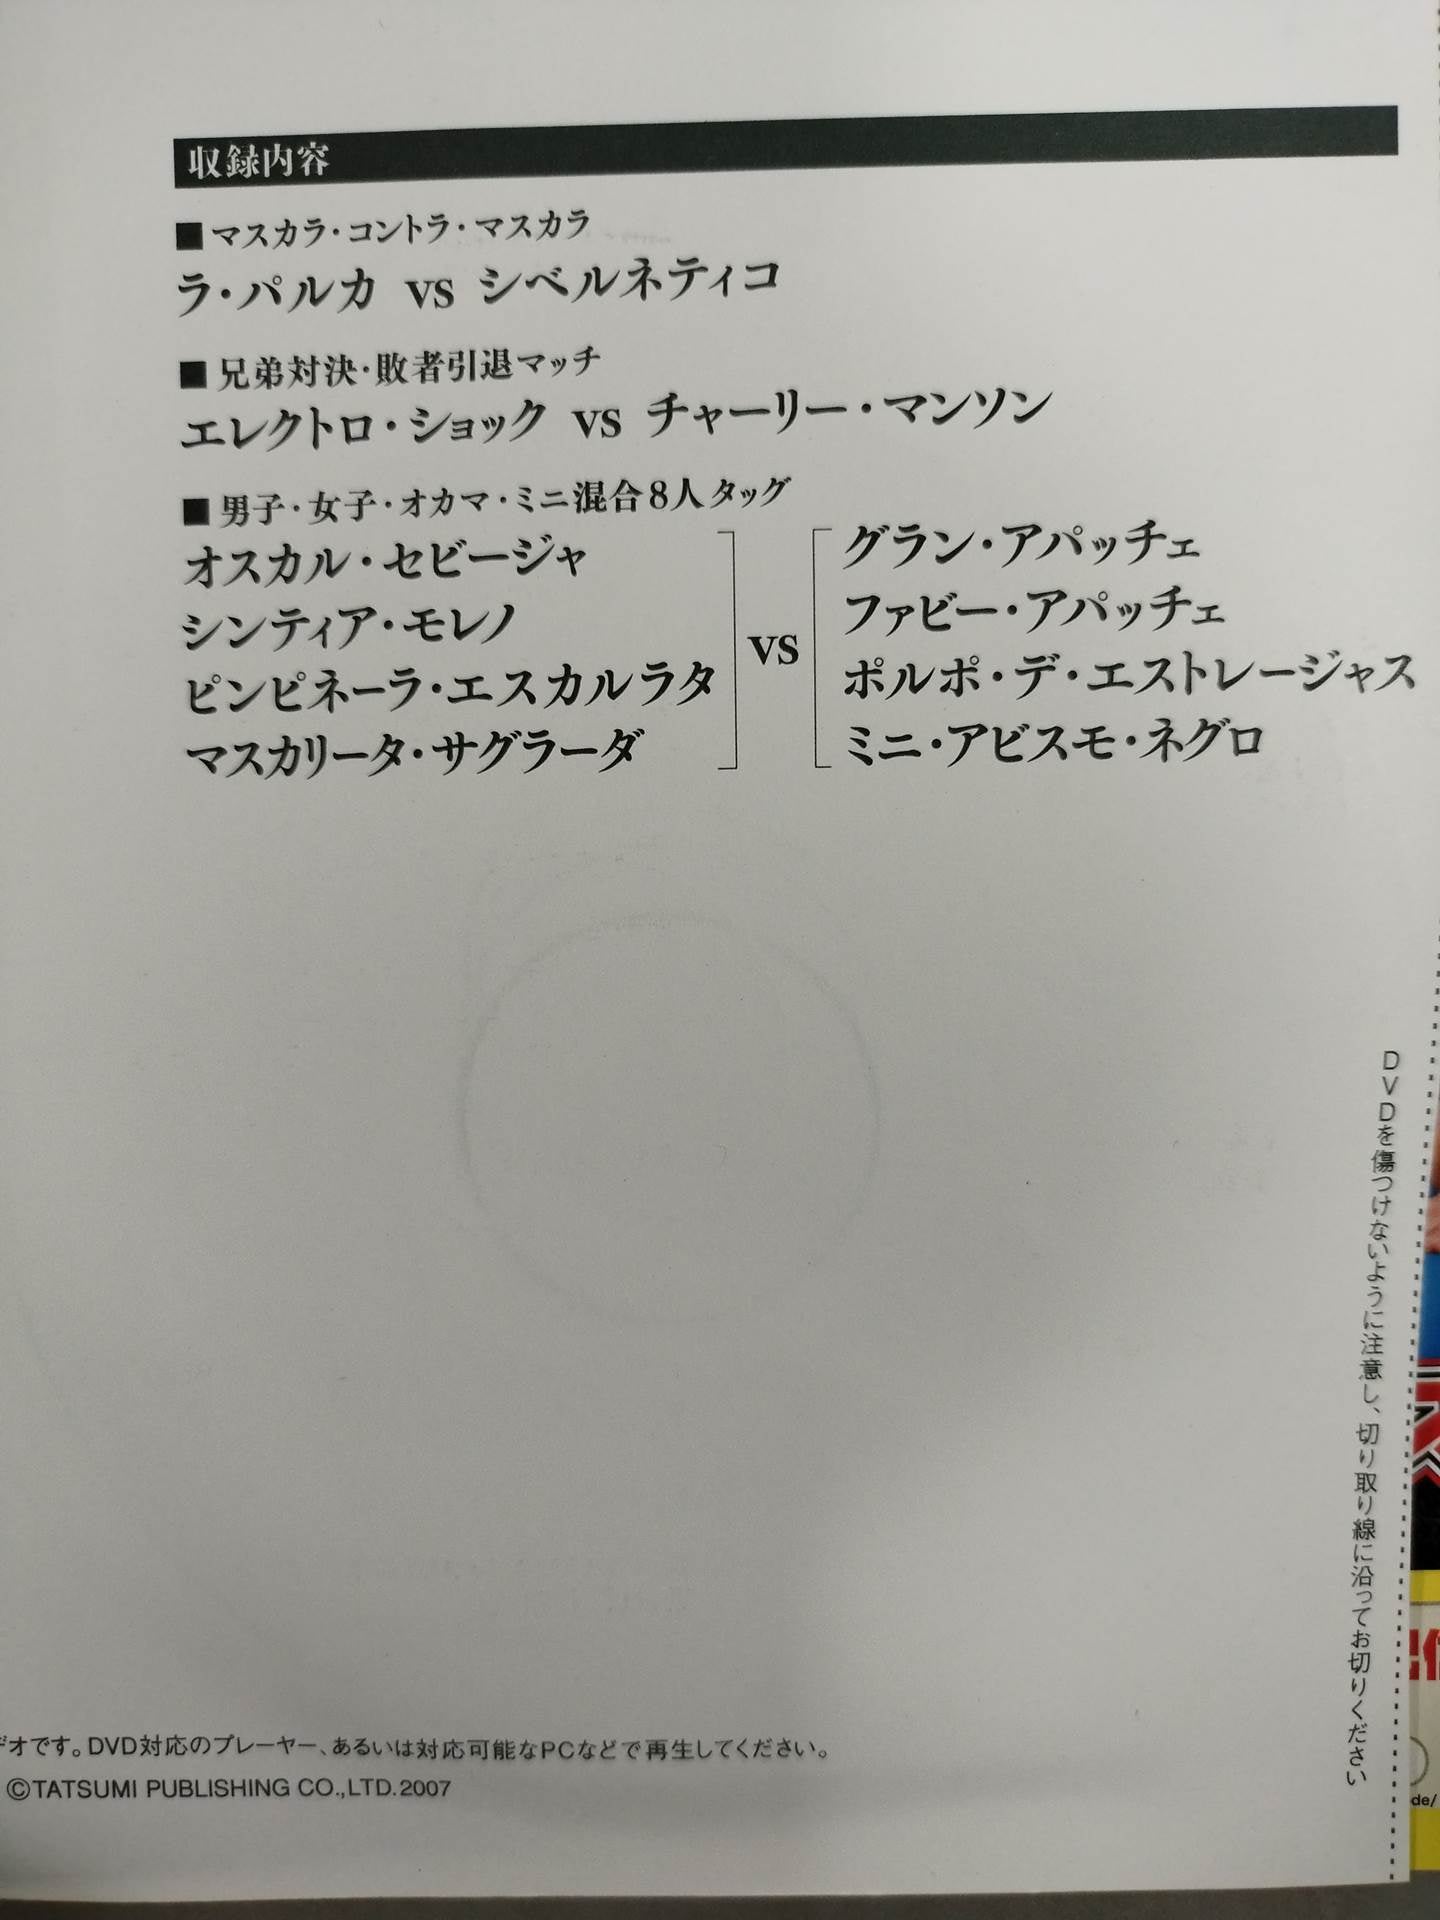 収録内容
■マスカラ・コントラ・マスカラ
ラ・パルカ vs シベルネティコ
■兄弟対決・敗者引退マッチ
エレクトロ・ショック vs チャーリー・マンソン
■男子・女子・オカマ・ミニ混合8人タッグ
オスカル・セビージャ
シンティア・モレノ
ピンピネーラ・エスカルラタ
マスカリータ・サグラーダ
vs
グラン・アパッチェ
ファビー・アパッチェ
ポルポ・デ・エストレージャス
ミニ・アビスモ・ネグロ
DVDを傷つけないように注意し、切り取り線に沿ってお切りください
デオです。DVD対応のプレーヤー、あるいは対応可能なPCなどで再生してください。
©TATSUMI PUBLISHING CO.,LTD.2007
de/